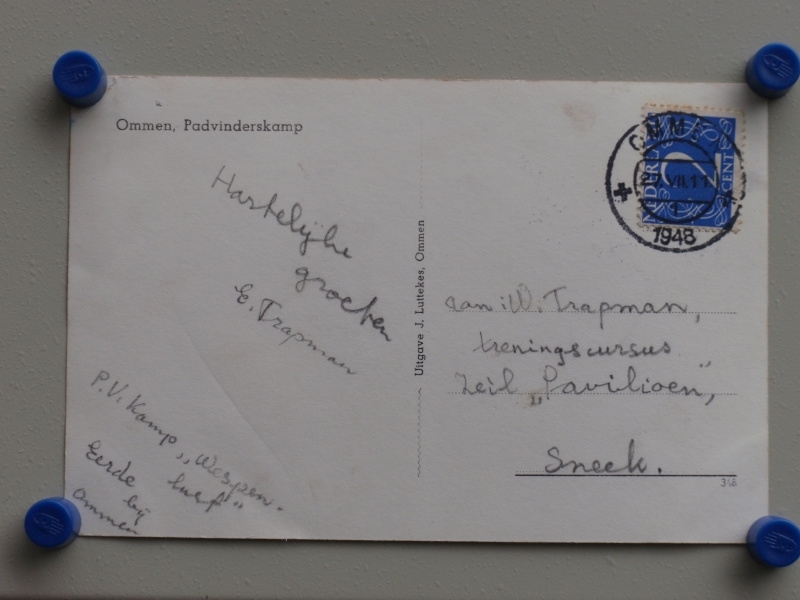 Ommen, Padvinderskamp
Hartelijke
groeten
E. Trapman
P.V. Kamp „Wespen-
Eerde
bij
Ommen
Uitgave J. Luttekes, Ommen
OMMEN
VII.11
1
1948
NEDERL
2
CENT
aan: W. Trapman,
treningscursus
Zeil „Pavilioen",
Sneek.